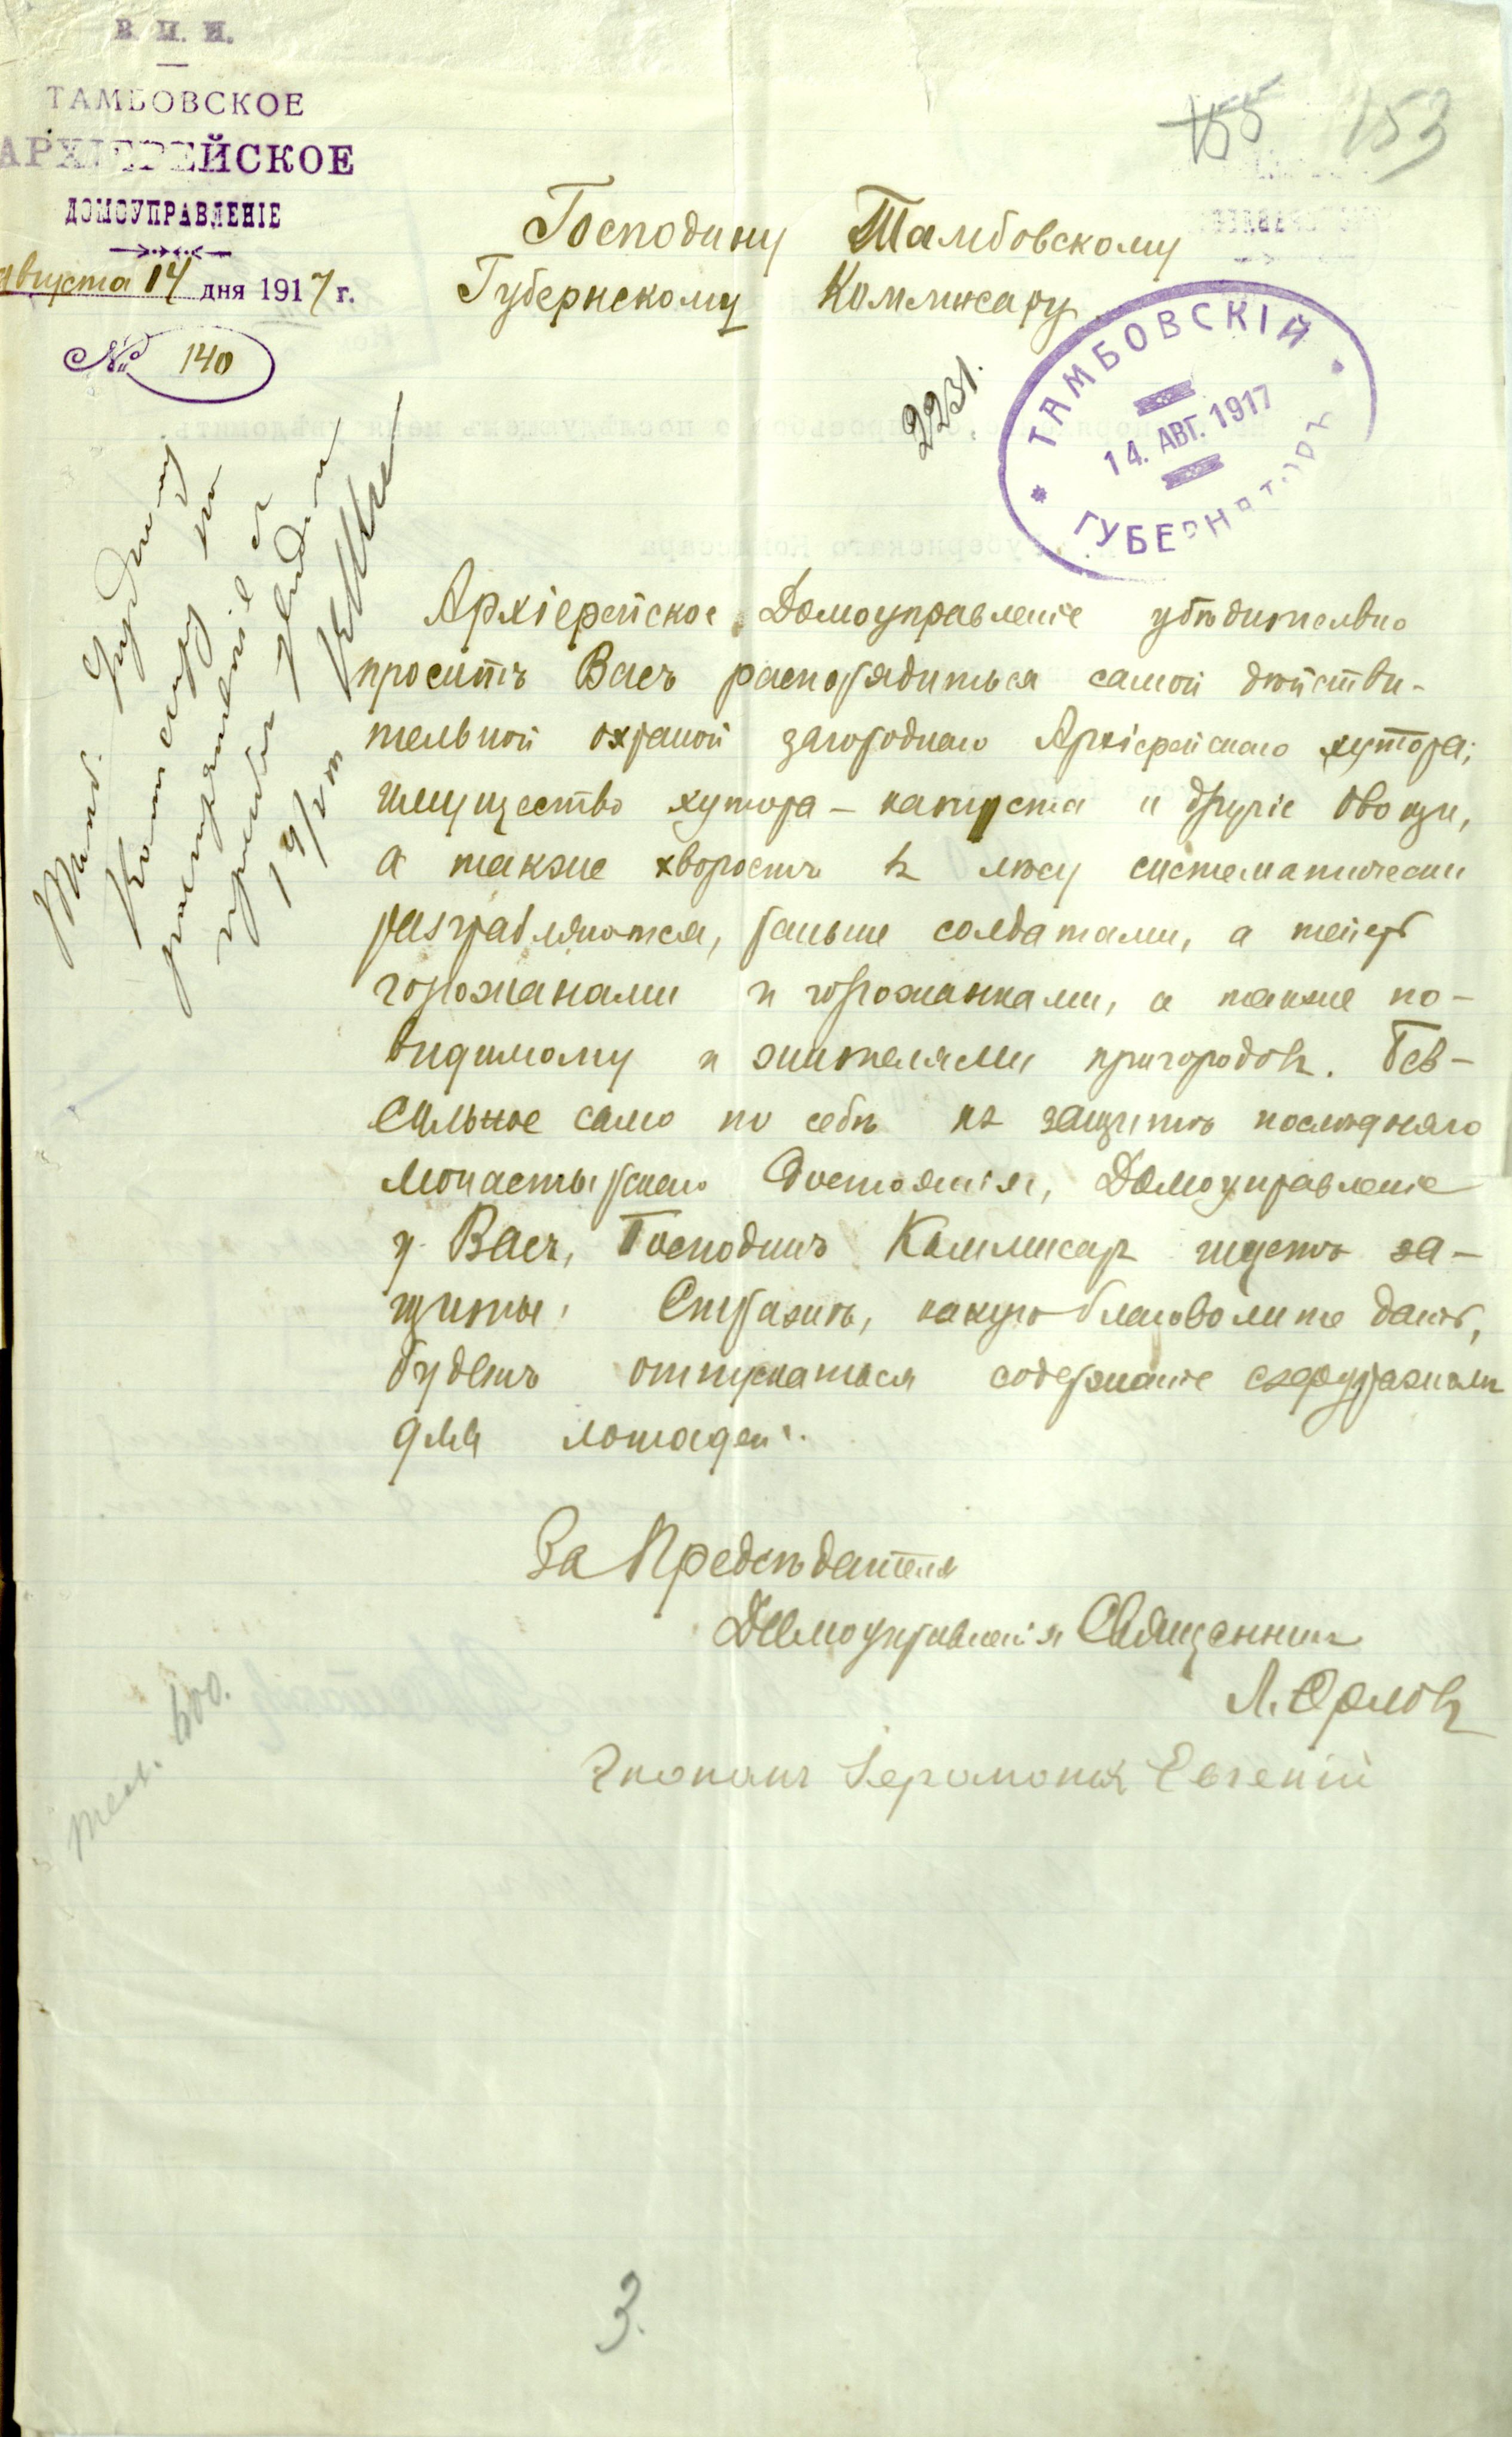 В. П. И.
ТАМБОВСКОЕ
АРХІЕРЕЙСКОЕ
ДОМОУПРАВЛЕНІЕ
августа 14 дня 1917 г.
№ 140
155 153
Господину Тамбовскому
Губернскому Коммисару
2231.
ТАМБОВСКІЙ
14. АВГ. 1917
ГУБЕРНАТОРЪ
Архіерейское Домоуправленіе убѣдительно
проситъ Васъ распорядиться самой дѣйстви-
тельной охраной загороднаго Архіерейскаго хутора;
имущество хутора – капуста и другіе овощи,
а также хворостъ въ лѣсу систематически
разграбляются, раньше солдатами, а теперь
горожанами и горожанками, а также по-
видимому и жителями пригородовъ. Без-
сильное само по себѣ къ защитѣ послѣдняго
монастырскаго достоянія, Домоуправленіе
у Васъ, Господинъ Коммисаръ ищетъ за-
щиты. Стражѣ, какую благоволите дать,
будетъ отпускаться содержаніе съ фуражомъ
для лошадей.
За Предсѣдателя
Домоуправленія Священникъ
Л. Орловъ
Экономъ Іеромонахъ Евгеній
Тамб. Уѣздному
Комиссару на
распоряженіе
тел. 600.
3.